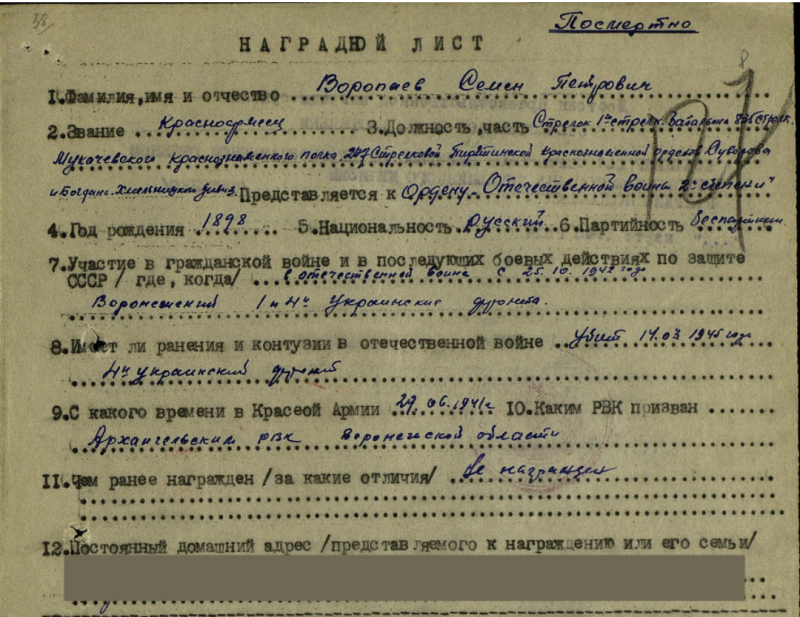 38
Посмертно
НАГРАДНОЙ ЛИСТ
1. Фамилия, имя и отчество Воропаев Семен Петрович
2. Звание Красноармеец 3. Должность, часть Стрелок 1го стрелк. батальона стрелк.
Мукачевского краснознаменного полка, Стрелковой Пирятинской краснознаменной орденов Суворова
и Богдана-Хмельницкого дивиз. Представляется к Ордену "Отечественной войны 2й степени"
4. Год рождения 1898 5. Национальность Русский 6. Партийность беспартийн.
7. Участие в гражданской войне и в последующих боевых действиях по защите
СССР / где, когда/ в отечественной войне с 25.10.1942 года
Воронежский 1 и 4й украинские фронта.
8. Имеет ли ранения и контузии в отечественной войне убит 14.03 1945 года
4й украинский фронт
9. С какого времени в Красеой Армии 29.06.1941г 10. Каким РВК призван
Архангельским рвк Воронежской области
11. Чем ранее награжден /за какие отличия/ не награжден
12. Постоянный домашний адрес /представляемого к награждению или его семьи/